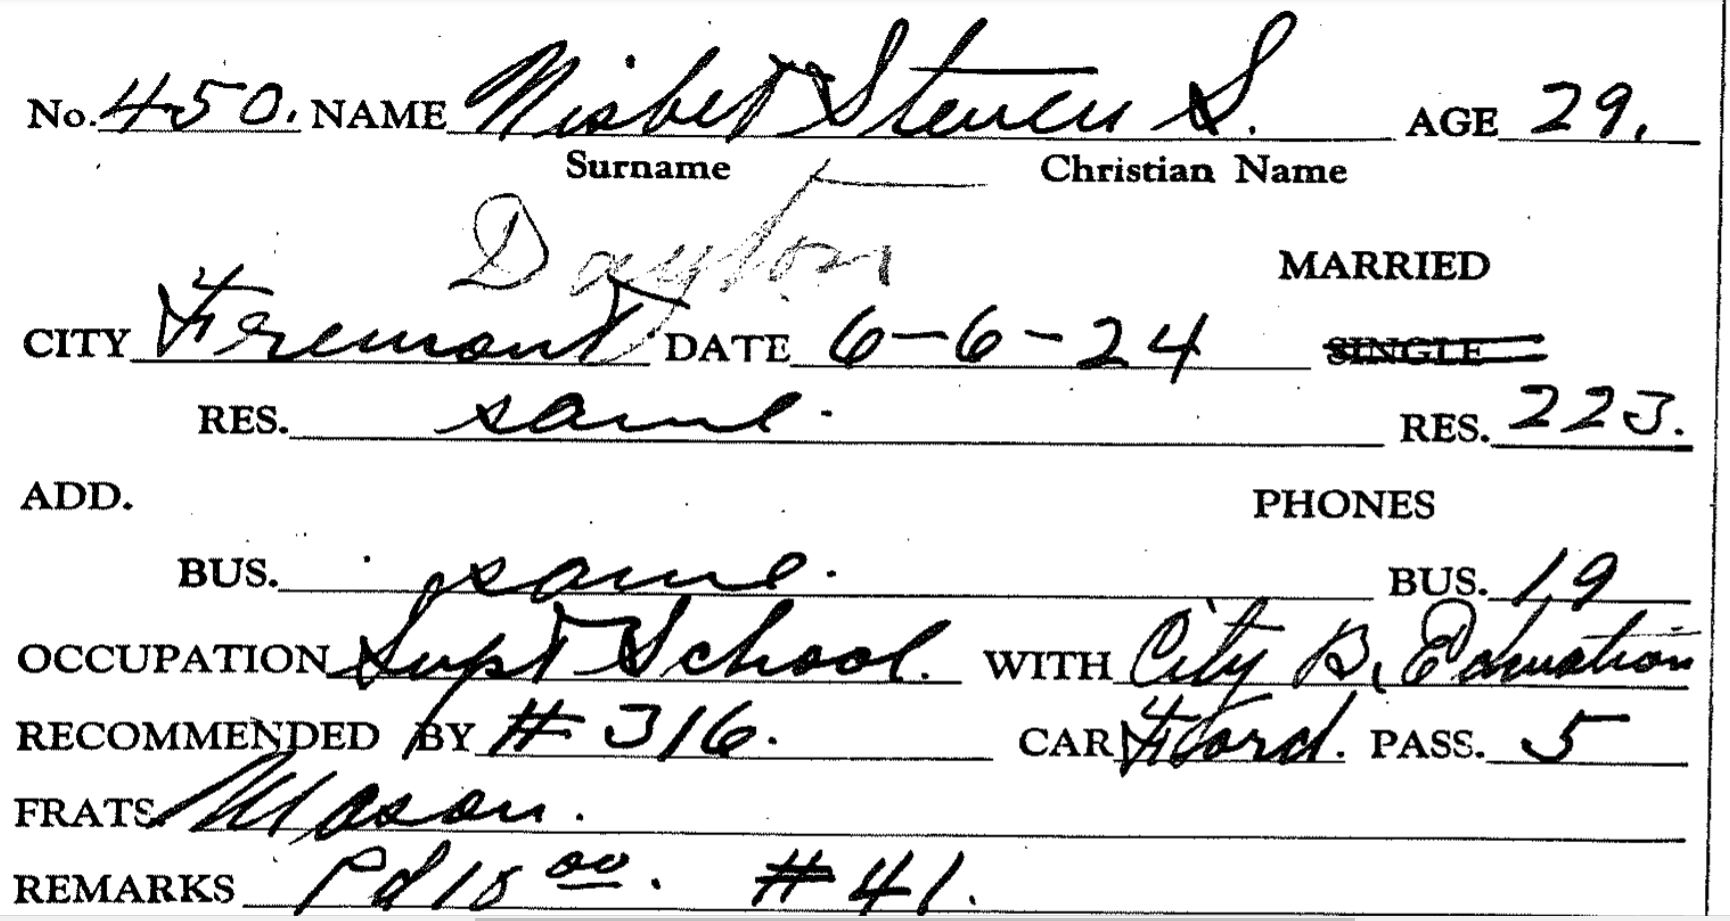 No. 450. NAME Nisbet Steven S. AGE 29.
Surname Christian Name
Dayton
MARRIED
CITY Fremont DATE 6-6-24 SINGLE
RES. same. RES. 223.
ADD. PHONES
BUS. same. BUS. 19
OCCUPATION Supt School. WITH City B. Education
RECOMMENDED BY # 316. CAR Ford. PASS. 5
FRATS. Mason.
REMARKS Pd 10 00. # 41.